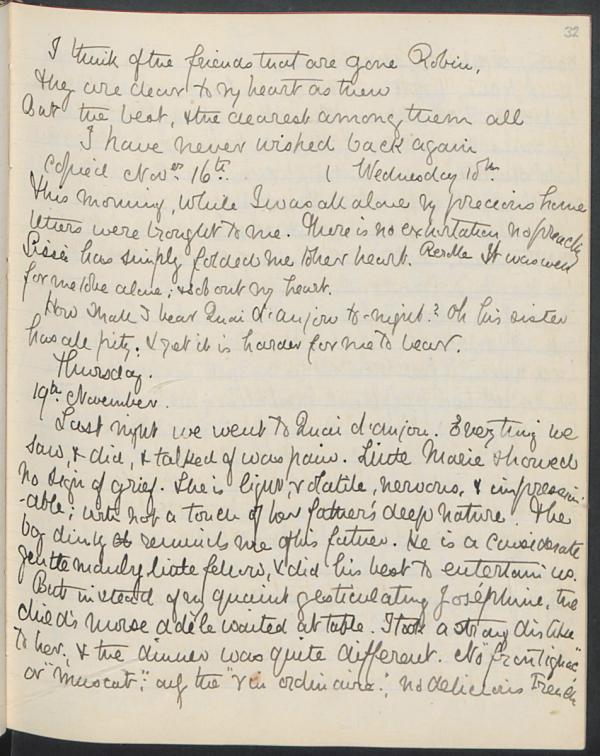 32
I think of the friends that are gone Robin,
they are dear to my heart as then
But the best, & the dearest among them all
I have never wished back again
Copied Nov.er 16th. Wednesday 18th
This morning, while I was all alone my precious home
letters were brought to me. There is no exhortation no preach
Sissie has simply folded me to her heart. It was well
for me to be alone; & sob out my heart.
How shall I bear Quai d'anjou to-night? Oh his sister
has all pity; & yet it is harder for me to bear.
Thursday.
19th November.
Last night we went to Quai d'anjou. Everything we
saw, & did, & talked of was pain. Little Marie showed
no sign of grief. She is light, volatile, nervous, & impression-
-able; with not a touch of her father's deep nature. The
boy dimly reminds me of his father. He is a considerate
gentle manly little fellow, & did his best to entertain us.
But instead of my quaint gesticulating Joséphine, the
child's nurse adèle waited at table. I took a strong dislike
to her; & the dinner was quite different. No "frontignac"
or "muscat"; only the "vin ordinaire"; no delicious French